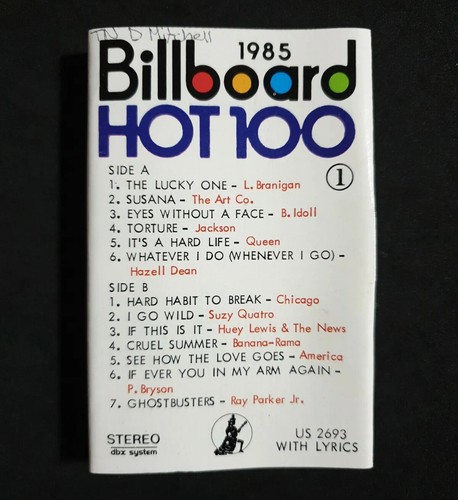 TN D Mitchell
1985
Billboard
HOT 100
SIDE A
1
1. THE LUCKY ONE - L. Branigan
2. SUSANA - The Art Co.
3. EYES WITHOUT A FACE - B. Idoll
4. TORTURE - Jackson
5. IT'S A HARD LIFE - Queen
6. WHATEVER I DO (WHENEVER I GO) -
Hazell Dean
SIDE B
1. HARD HABIT TO BREAK - Chicago
2. I GO WILD - Suzy Quatro
3. IF THIS IS IT - Huey Lewis & The News
4. CRUEL SUMMER - Banana-Rama
5. SEE HOW THE LOVE GOES - America
6. IF EVER YOU IN MY ARM AGAIN -
P. Bryson
7. GHOSTBUSTERS - Ray Parker Jr.
STEREO
dbx system
US 2693
WITH LYRICS